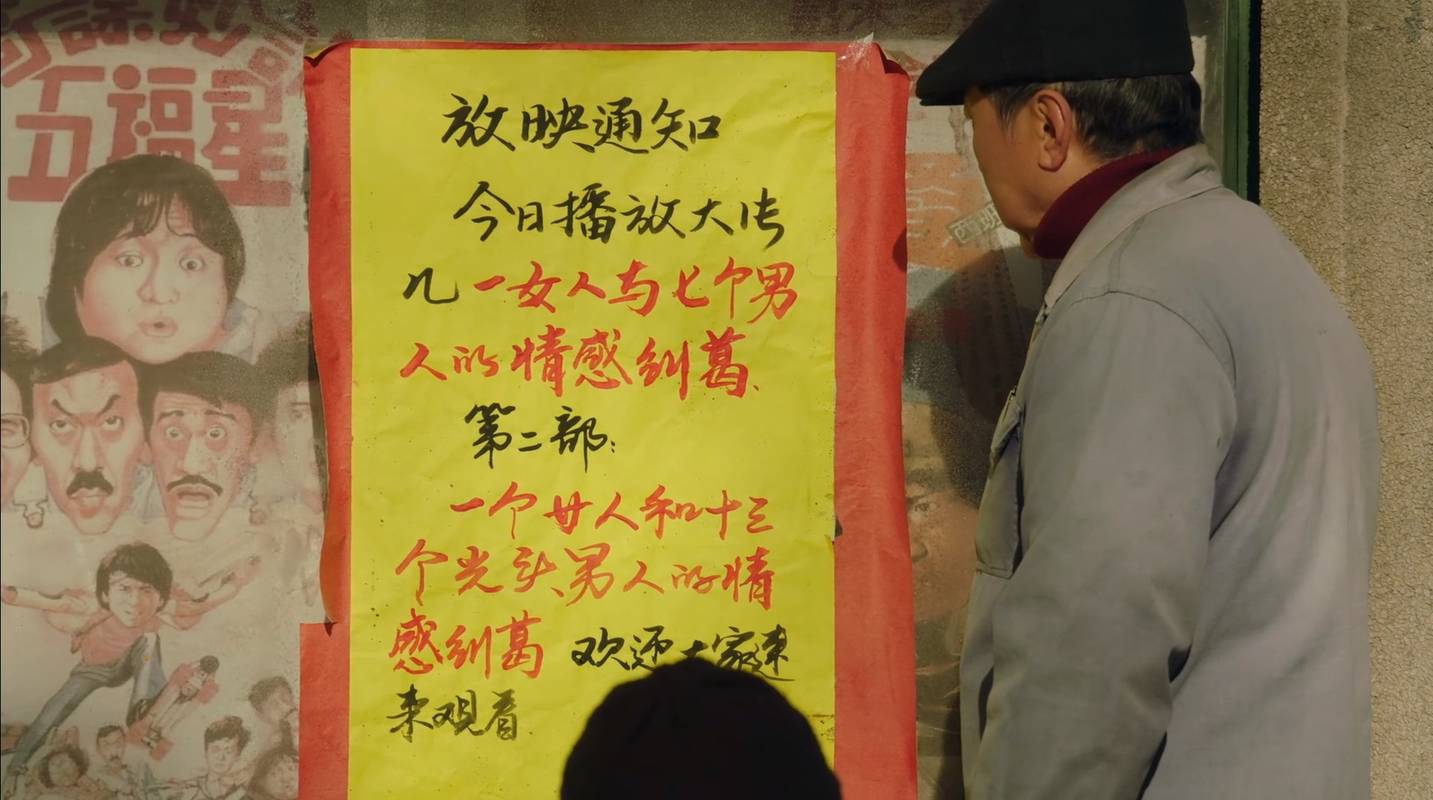 奇謀妙計
五福星
放映通知
今日播放大片
儿一女人与七个男
人的情感纠葛、
第二部：
一个女人和十三
个光头男人的情
感纠葛 欢迎大家速
来观看